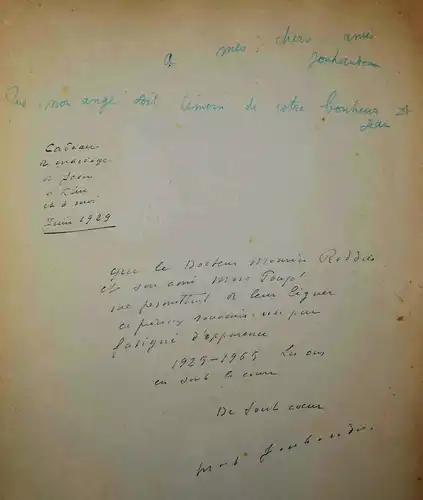 a mes chers amis
Jouhandeau
Que mon ange soit témoin de votre bonheur
Jean
Cadeau
de mariage
de Jean
à Élise
et à moi
Juin 1929
Que le Docteur Maurice
et son ami Marc
me permettent de leur léguer
ce précieux souvenir, un peu
fatigué d'apparence
1929-1965 Les ans
en sont la cause
De tout coeur
Marcel Jouhandeau.